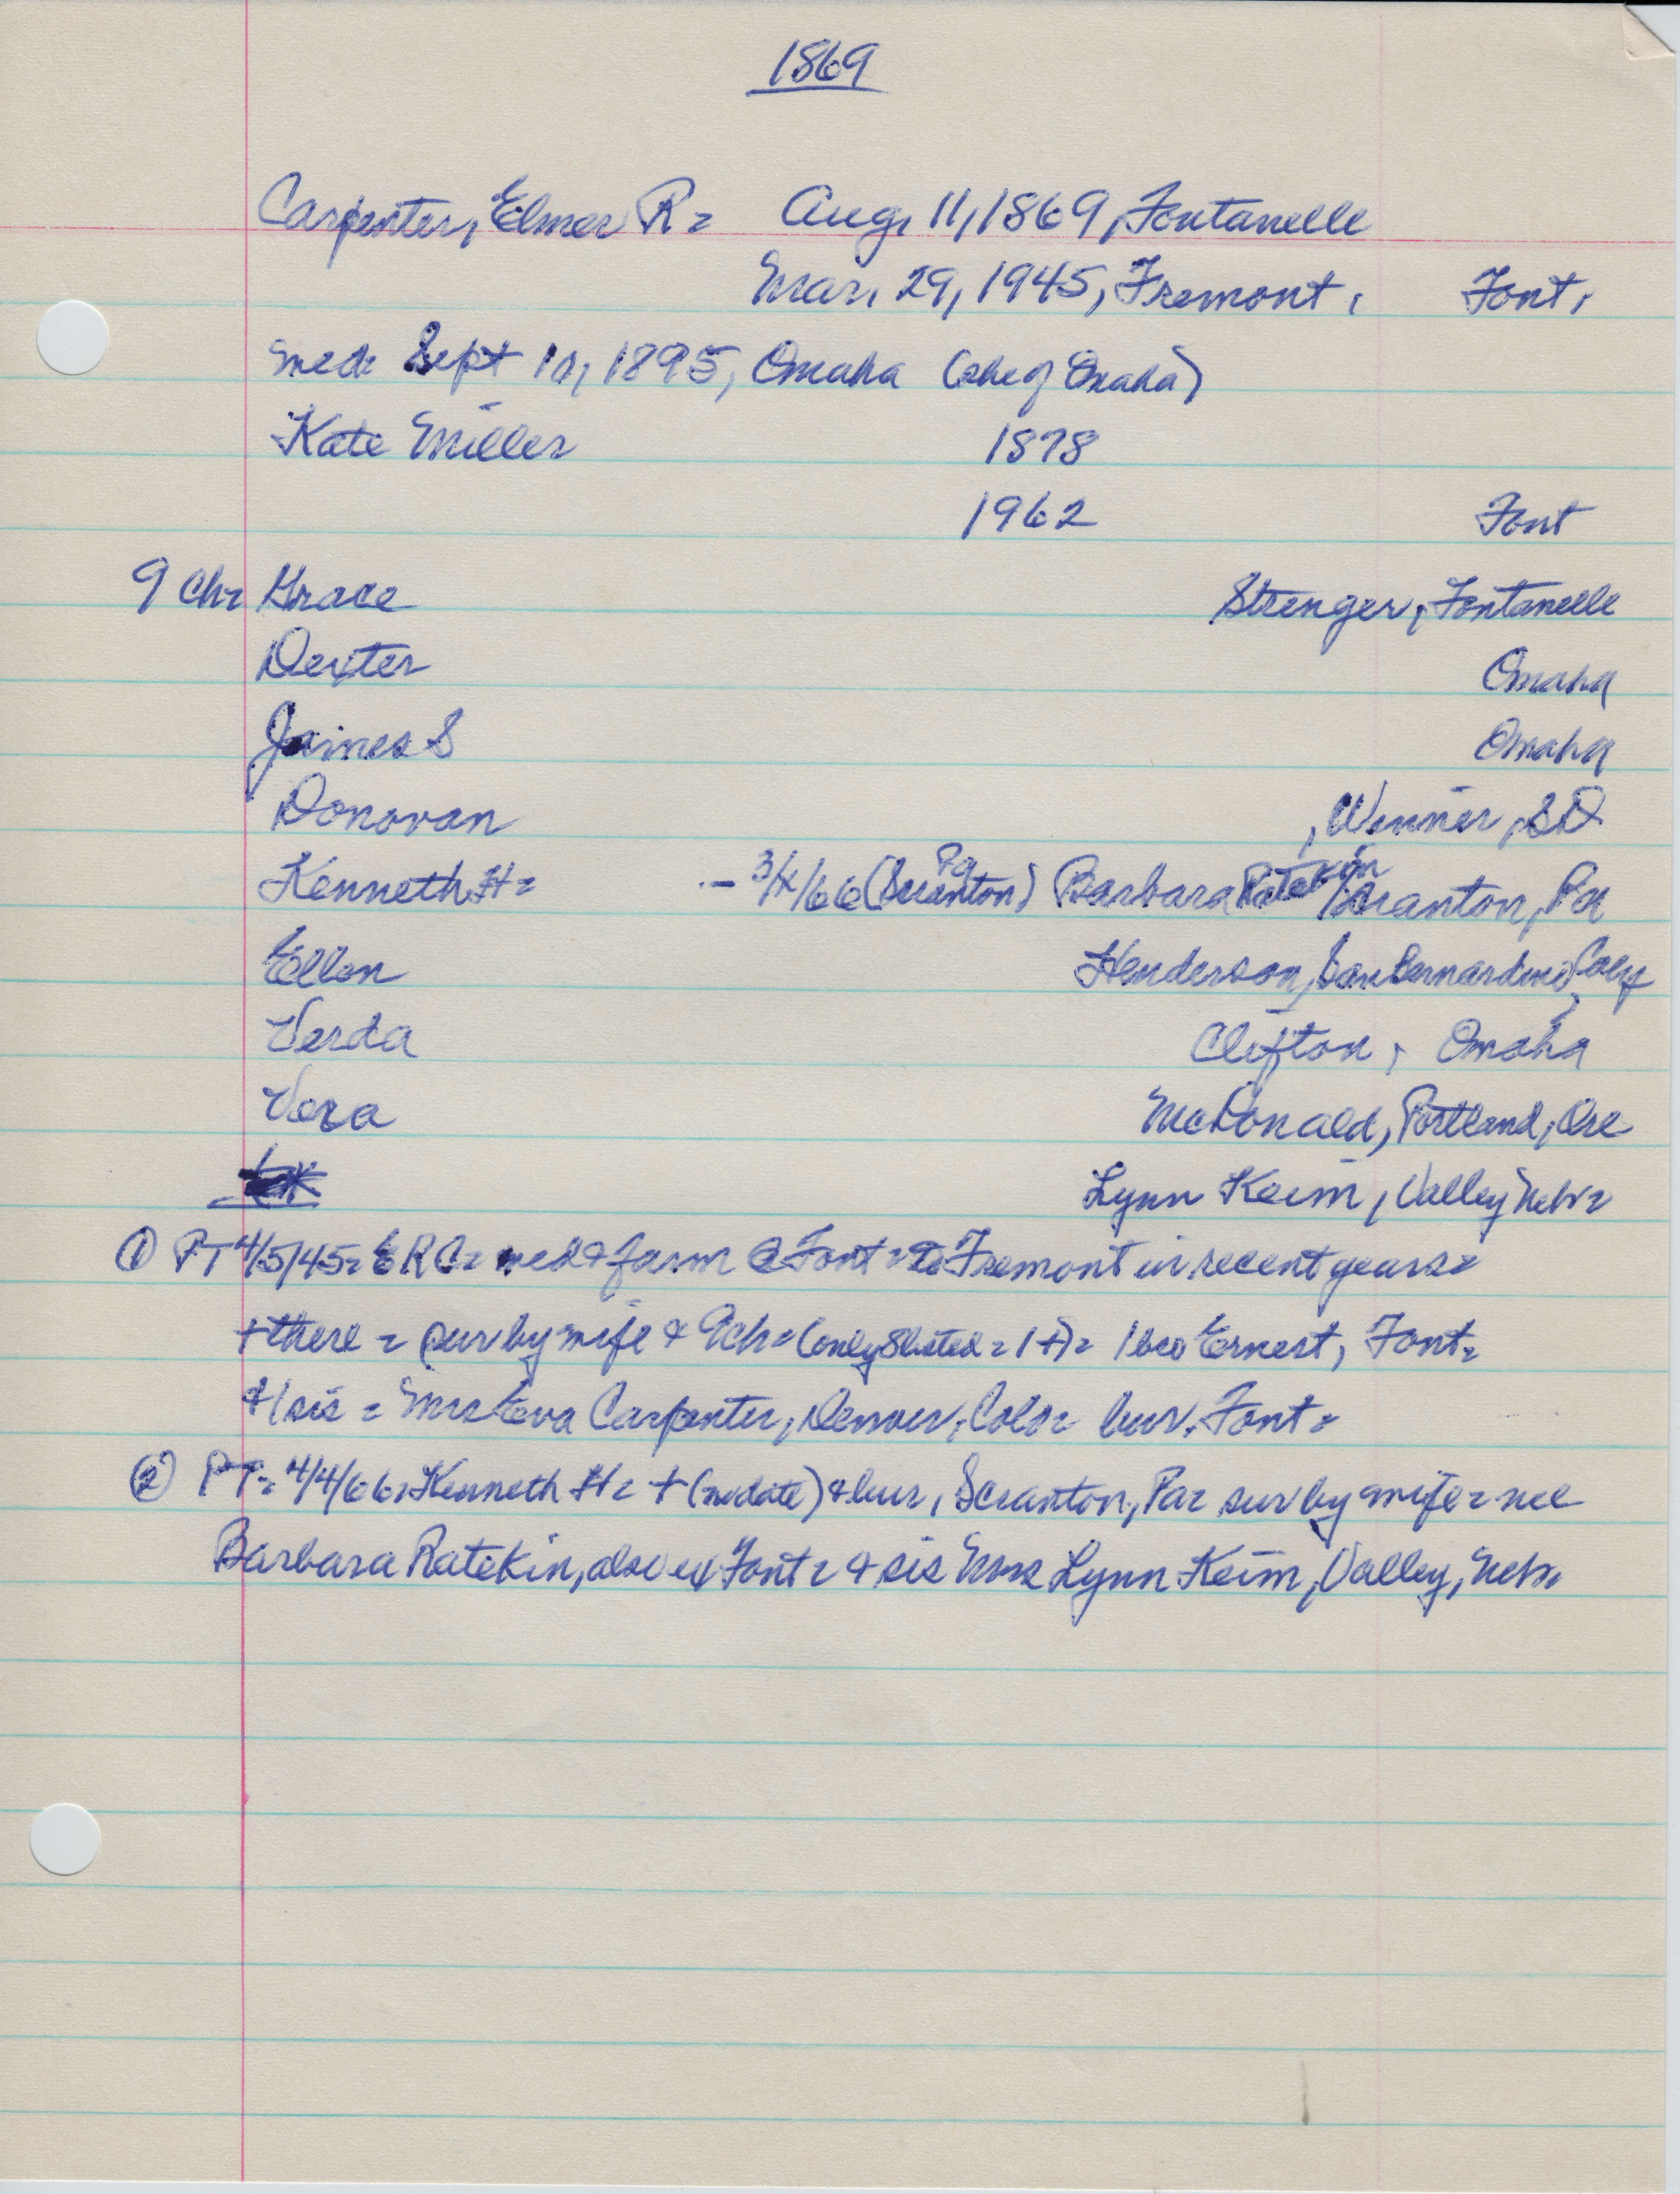 1869
Carpenter, Elmer R = Aug, 11, 1869, Fontanelle
Mar, 29, 1945, Fremont, Font,
med: Sept 10, 1895, Omaha (she of Omaha)
Kate Miller 1878
1962 Font
9 ch = Grace Stenger, Fontanelle
Dexter Omaha
James S Omaha
Donovan , Winner, SD
Kenneth H = - 3/x/66 (Scranton, Pa) Barbara Ratekin / Scranton, Pa
Ellen Henderson, San Bernardino, Calif
Verda Clifton, Omaha
Vera McDonald, Portland, Ore
Lynn Keim, Valley Nebr =
① PT 4/5/45 = E R C = med & farm @ Font = to Fremont in recent years =
+ there = sur by wife & 9 ch = (only 8 listed = 1 +) = 1 bro Ernest, Font =
& 1 sis = Mrs Eva Carpenter, Denver, Colo = bur. Font =
② PT = 4/4/66 = Kenneth H = + (no date) & bur, Scranton, Pa = sur by wife = nee
Barbara Ratekin, also ex Font = & sis Mrs Lynn Keim, Valley, Nebr